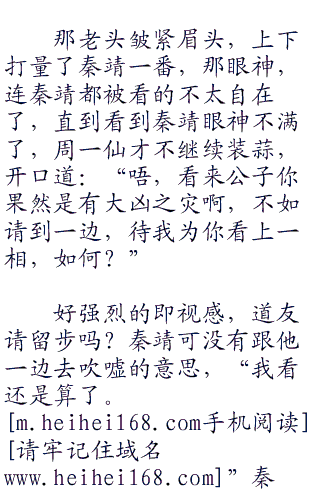 那老头皱紧眉头，上下
打量了秦靖一番，那眼神，
连秦靖都被看的不太自在
了，直到看到秦靖眼神不满
了，周一仙才不继续装蒜，
开口道：“唔，看来公子你
果然是有大凶之灾啊，不如
请到一边，待我为你看上一
相，如何？”
好强烈的即视感，道友
请留步吗？秦靖可没有跟他
一边去吹嘘的意思，“我看
还是算了。
[m.heihei168.com手机阅读]
[请牢记住域名
www.heihei168.com]”秦